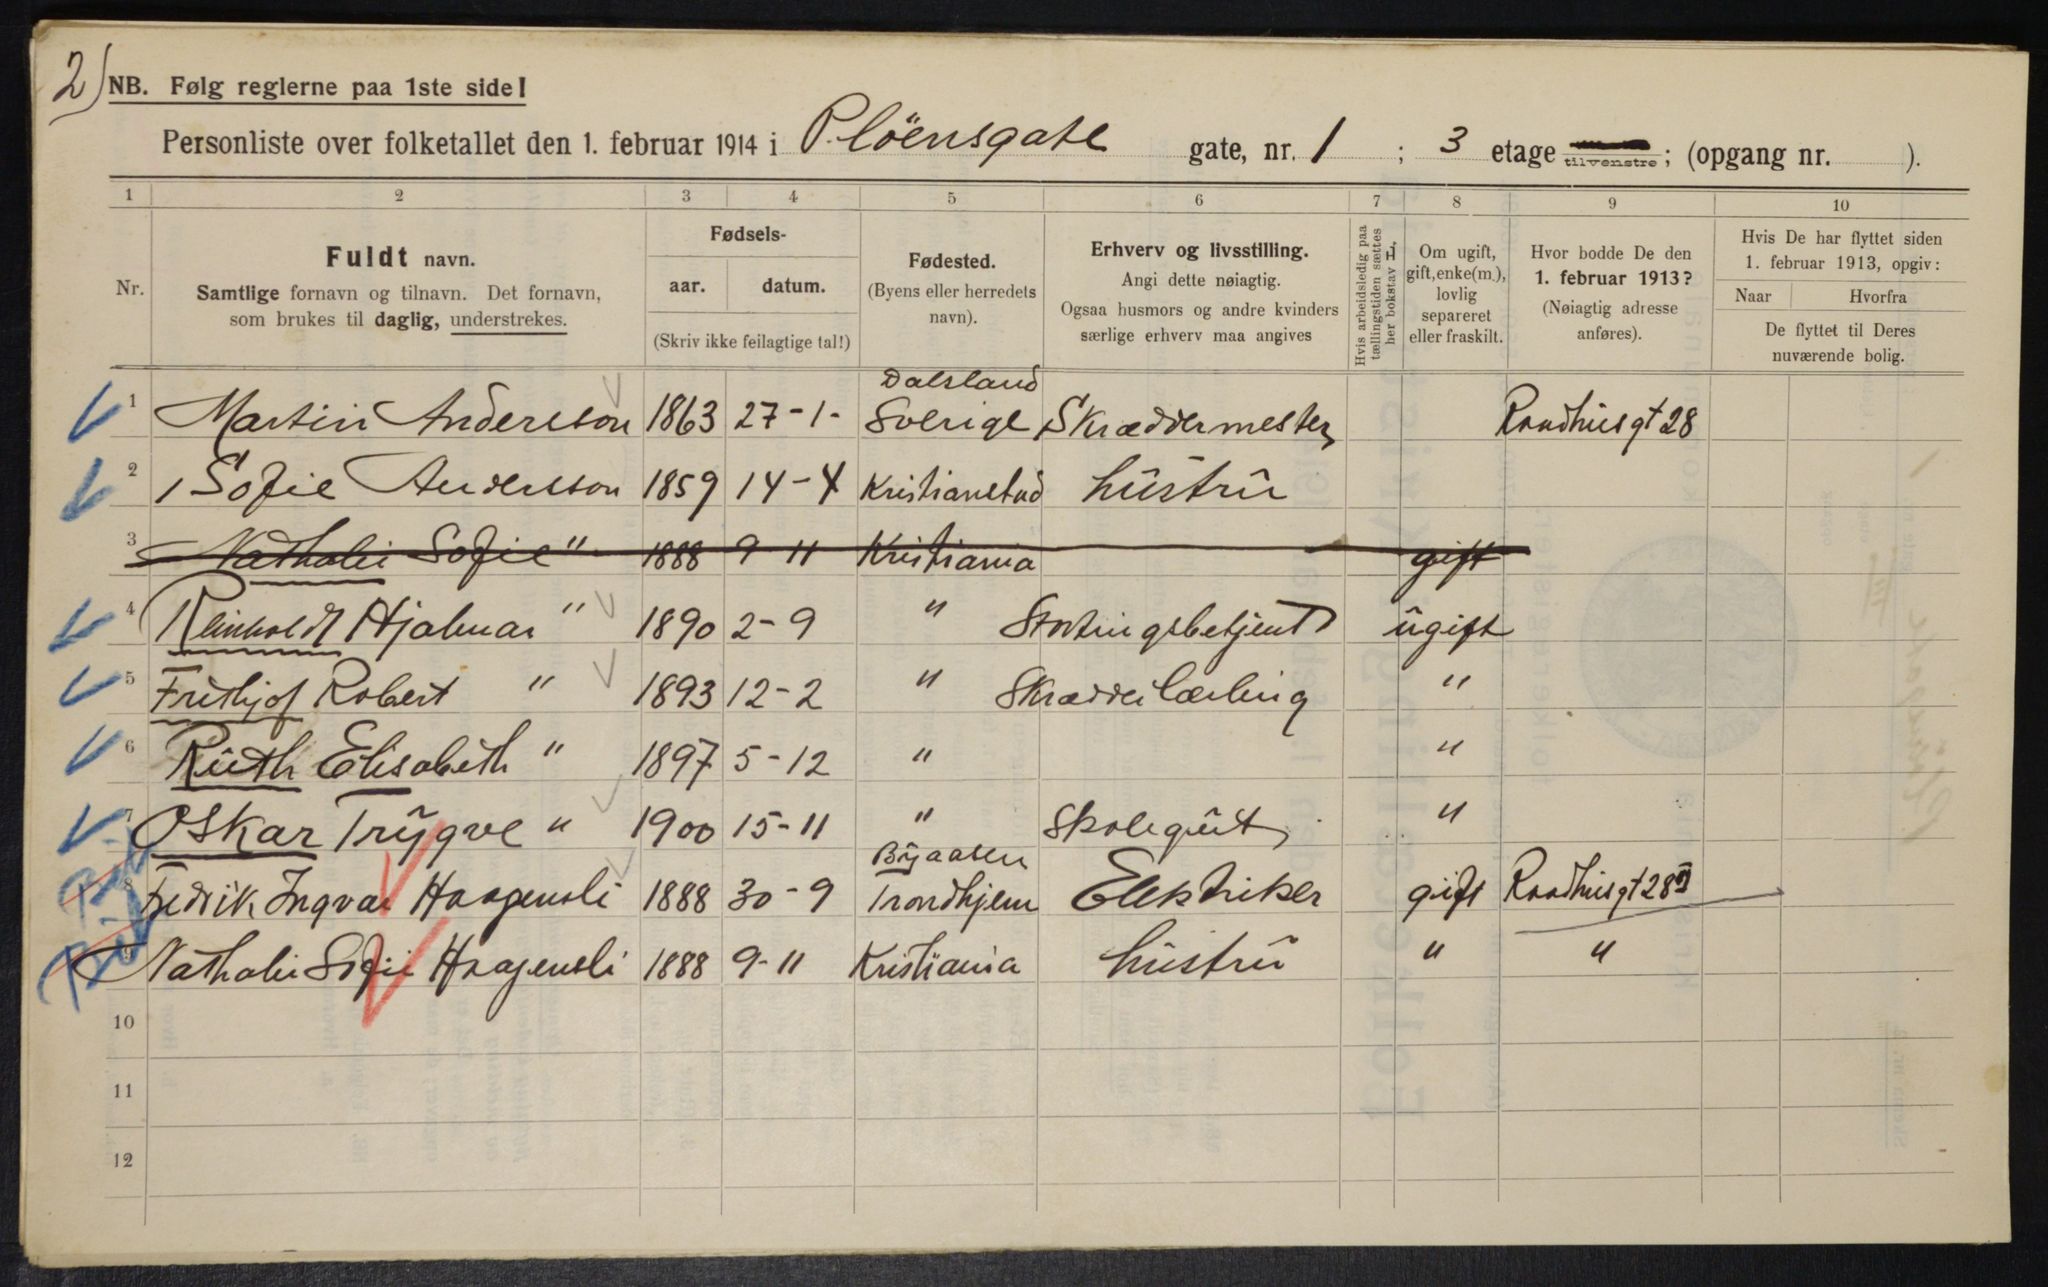 2)
NB. Følg reglerne paa 1ste side!
Personliste over folketallet den 1. februar 1914 i Plöensgate gate, nr. 1 ; 3 etage tilvenstre ; (opgang nr. ).
1 2 3 4 5 6 7 8 9 10
Nr.
Fuldt navn.
Samtlige fornavn og tilnavn. Det fornavn,
som brukes til daglig, understrekes.
Fødsels-
aar. datum.
(Skriv ikke feilagtige tal!)
Fødested.
(Byens eller herredets
navn).
Erhverv og livsstilling.
Angi dette nøiagtig.
Ogsaa husmors og andre kvinders
særlige erhverv maa angives
Hvis arbeidsledig paa
tællingstiden sættes
her bokstav L.
Om ugift,
gift, enke(m.),
lovlig
separeret
eller fraskilt.
Hvor bodde De den
1. februar 1913?
(Nøiagtig adresse
anføres).
Hvis De har flyttet siden
1. februar 1913, opgiv:
Naar Hvorfra
De flyttet til Deres
nuværende bolig.
1 Martin Andersson 1863 27-1- Dalsland Sverige Skræddermester Raadhusgt 28
2 Sofie Andersson 1859 14-4 Kristianstad hustru
3 Nathalie Sofie " 1888 9-11 Kristiania gift
4 Reinholdt Hjalmar " 1890 2-9 " Stortingsbetjent ugift
5 Frithjof Robert " 1893 12-2 " Skrædderlærling "
6 Ruth Elisabeth " 1897 5-12 " "
7 Oskar Trygve " 1900 15-11 " Skolegut "
8 Fredrik Ingvar Haagensli 1888 30-9 Byaasen Trondhjem Elektriker gift Raadhusgt 28
9 Nathalie Sofie Haagensli 1888 9-11 Kristiania hustru " "
10
11
12